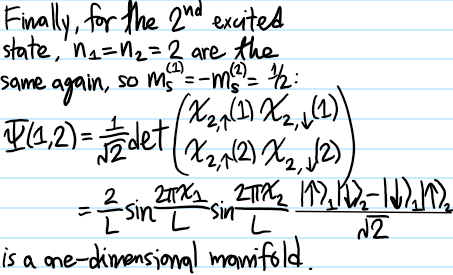 Finally, for the 2nd excited
state, n₁=n₂=2 are the
same again, so mₛ⁽¹⁾=-mₛ⁽²⁾=½:
Ψ(1,2)=1/√2 det(χ₂,↑(1) χ₂,↓(1)
χ₂,↑(2) χ₂,↓(2))
=2/L sin 2πx₁/L sin 2πx₂/L |↑⟩₁|↓⟩₂-|↓⟩₁|↑⟩₂/√2
is a one-dimensional manifold.